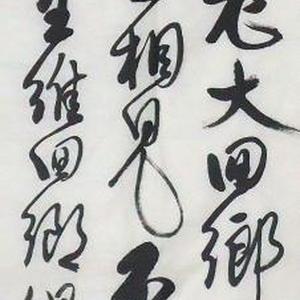 老大回鄉
相見不
維回鄉